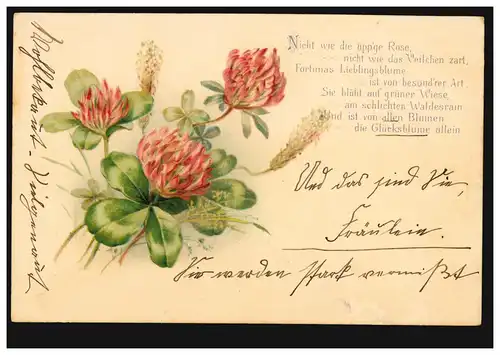 Nicht wie die üpp'ge Rose,
nicht wie das Veilchen zart,
Fortunas Lieblingsblume
ist von besond'rer Art.
Sie blüht auf grüner Wiese,
am schlichten Waldesrain
Und ist von allen Blumen
die Glücksblume allein
Und das sind Sie,
Fräulein.
Sie werden stark vermißt
Wohlbekannt -